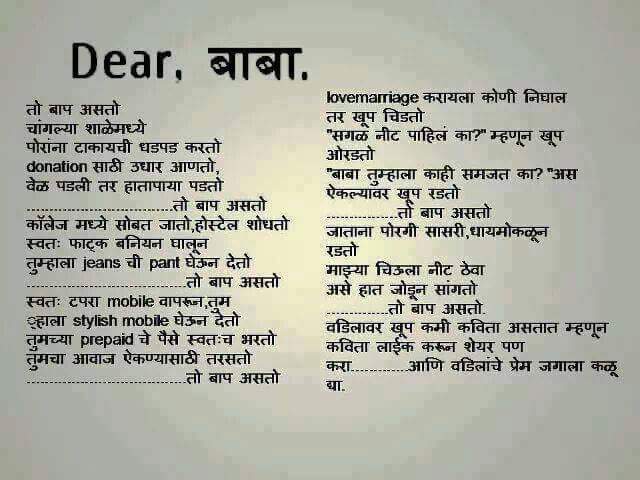 Dear, बाबा.
तो बाप असतो
चांगल्या शाळेमध्ये
पोरांना टाकायची धडपड करतो
donation साठी उधार आणतो,
वेळ पडली तर हातापाया पडतो
..............................तो बाप असतो
कॉलेज मध्ये सोबत जातो,होस्टेल शोधतो
स्वतः फाट्क बनियन घालून
तुम्हाला jeans ची pant घेऊन देतो
.................................तो बाप असतो
स्वतः टपरा mobile वापरून,तुम
्हाला stylish mobile घेऊन देतो
तुमच्या prepaid चे पैसे स्वतःच भरतो
तुमचा आवाज ऐकण्यासाठी तरसतो
.................................तो बाप असतो
lovemarriage करायला कोणी निघाल
तर खूप चिडतो
"सगळ नीट पाहिलं का?" म्हणून खूप
ओरडतो
"बाबा तुम्हाला काही समजत का? "अस
ऐकल्यावर खूप रडतो
...............तो बाप असतो
जाताना पोरगी सासरी,धायमोकळून
रडतो
माझ्या चिऊला नीट ठेवा
असे हात जोडून सांगतो
.............तो बाप असतो.
वडिलावर खूप कमी कविता असतात म्हणून
कविता लाईक करून शेयर पण
करा.............आणि वडिलांचे प्रेम जगाला कळू
द्या.